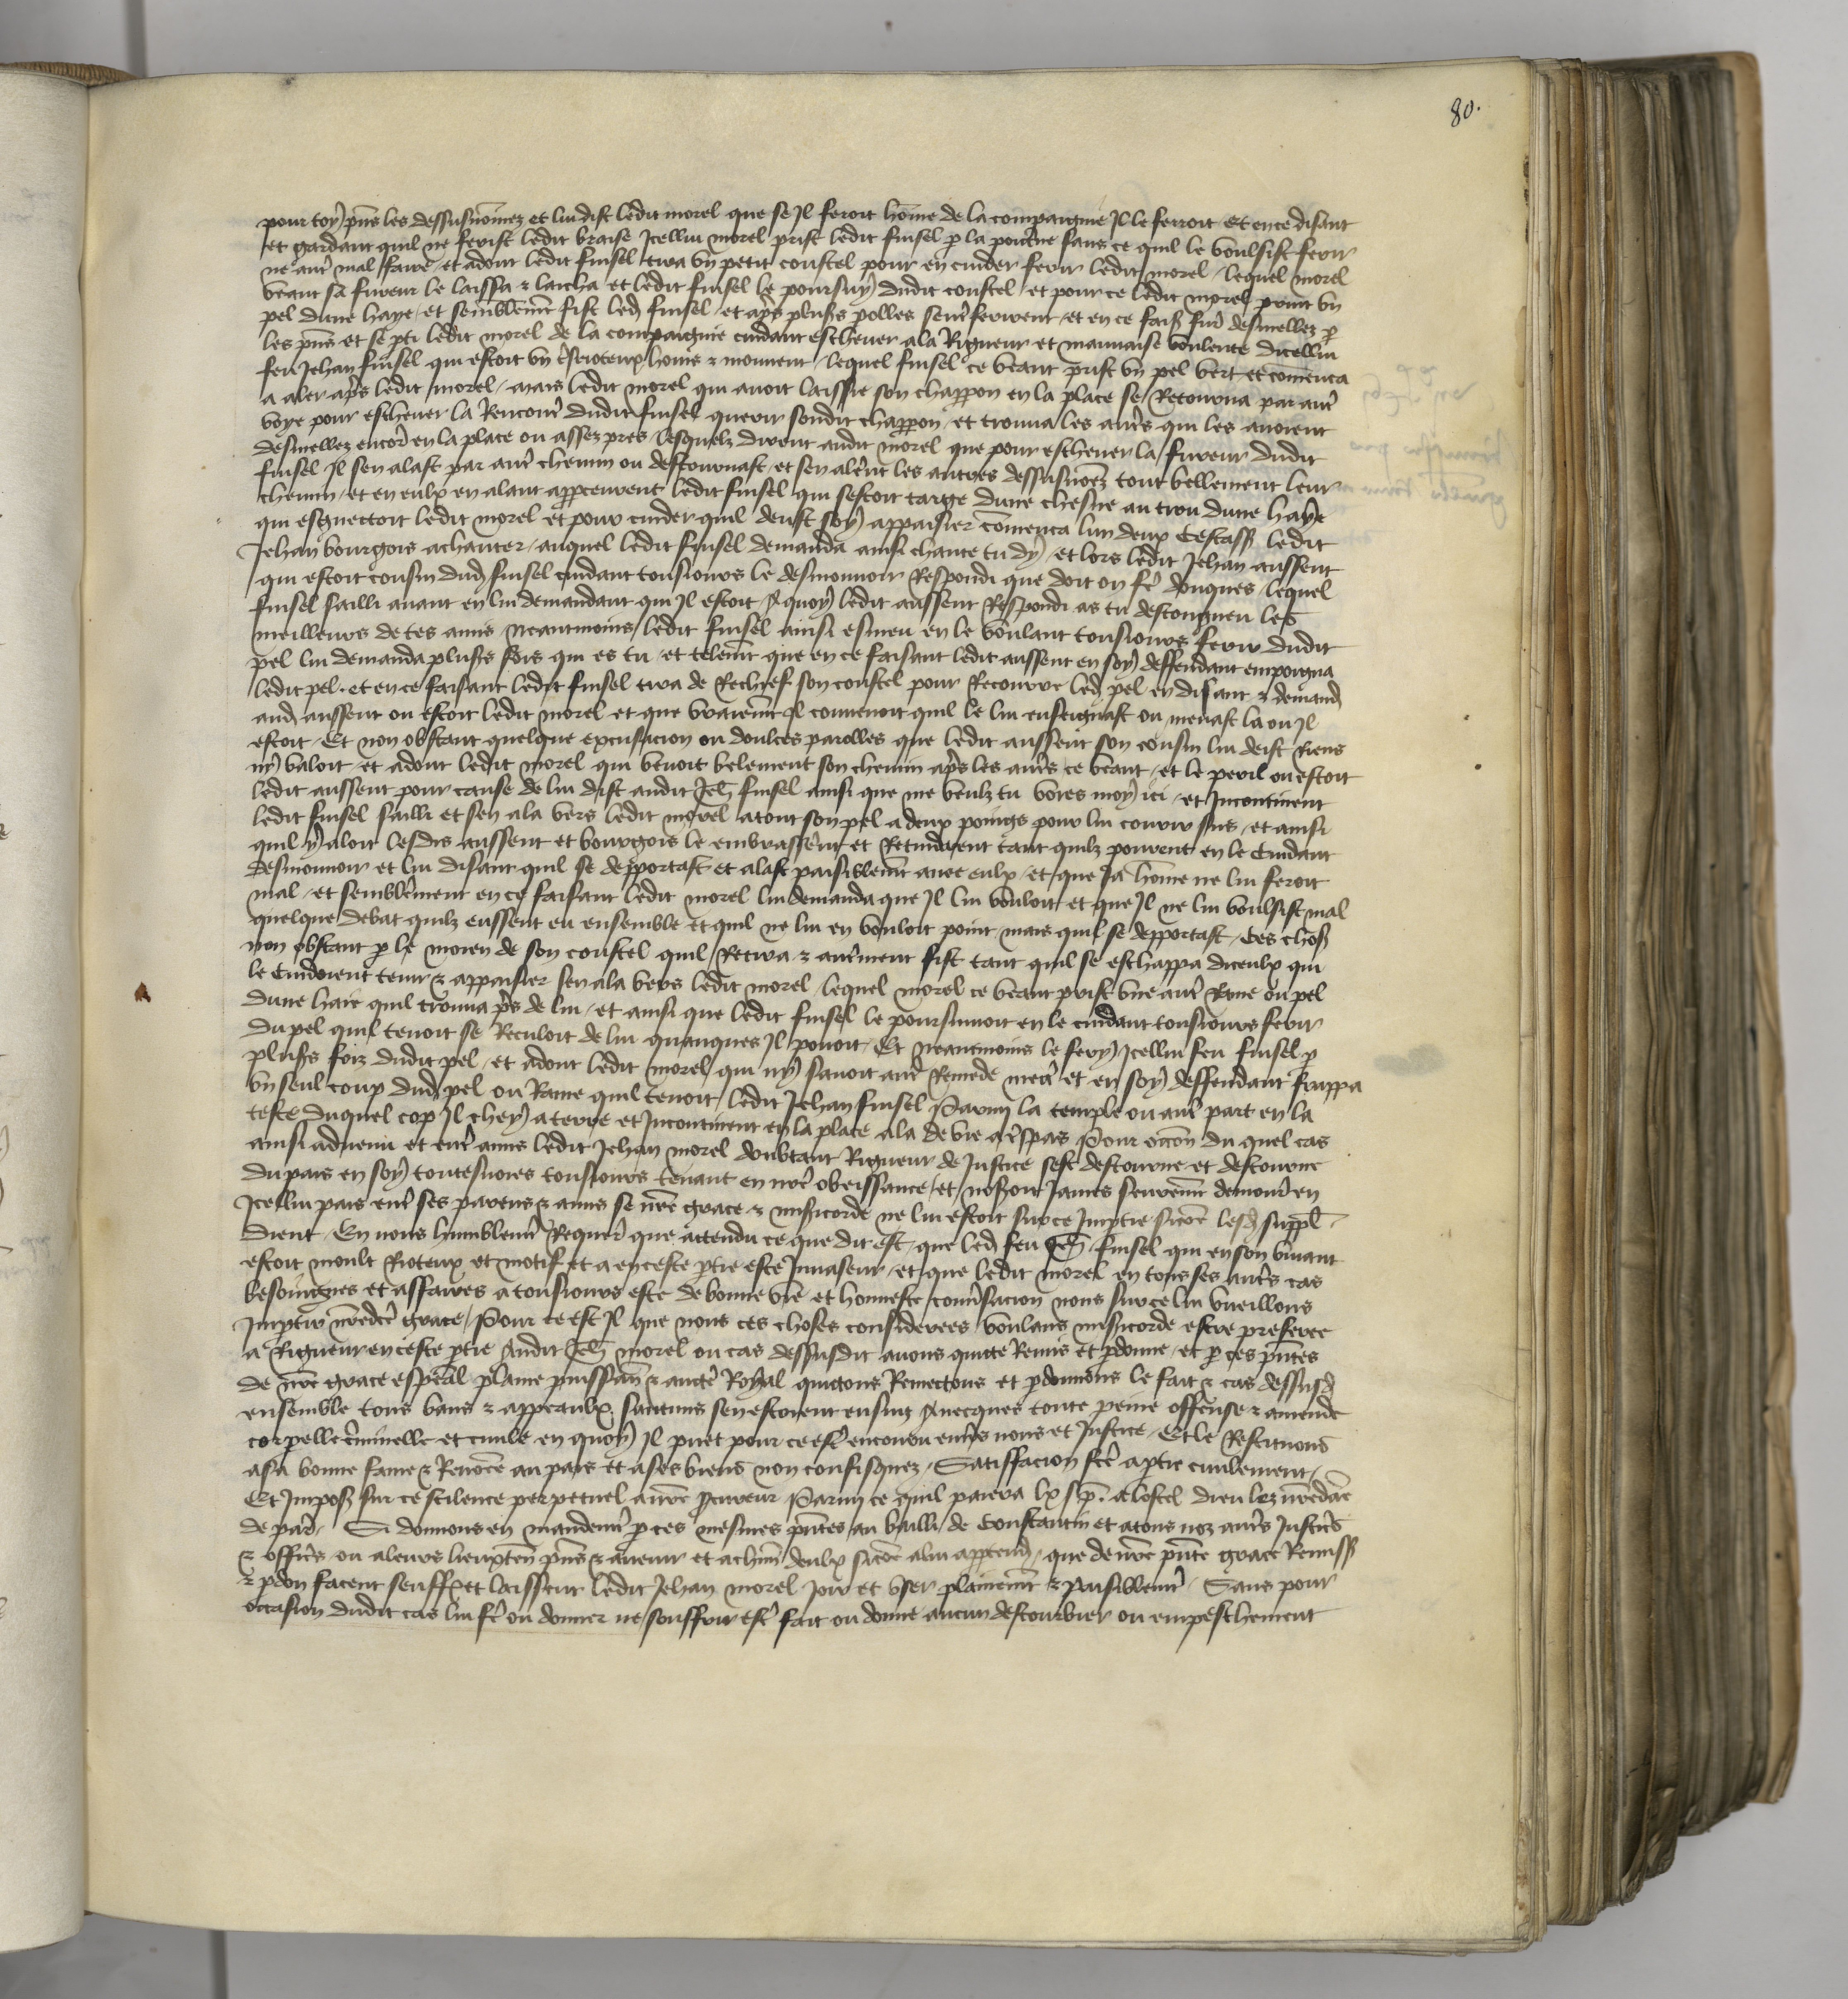 80.
pour toy pñs les dessusnõmez et lui dist ledit morel que se Il feroit hõme de la compaignie Il le ferroit Et en ce disant
et gardant quil ne ferist ledit braise Icellui morel prist ledit finsel p la poitrine sans ce quil le voulsist ferir
ne autre mal faire et adont ledit finsel tira vn petit coustel pour en cuider ferir ledit morel lequel morel
veant sa fureur le laissa & lascha et ledit finsel le poursuy dudit coustel et pour ce ledit morel print vn
pel dune haye et semblemt fist led finsel et apres pluss polles sentreferirent et en ce fais furent desmellez p
les pñs et se pti ledit morel de la compaignie cuidant eschever a la Rigueur et mauvaise voulente dicellui
feu Jehan finsel qui estoit vn tres Rioteux home & mouvent lequel finsel ce veant prist vn pel vert et comenca
a aler apres ledit morel mais ledit morel qui avoit laissie son chappon en la place se Retourna par autre
voye pour eschever la Rencontre dudit finsel querir sondit chappon et trouva les autres qui les avoient
desmellez encore en la place ou assez pres lesquelz dirent audit morel que pour eschever la fureur dudit
finsel Il sen alast par autre chemin ou destournast et sen alerent les autres dessusnoez tout bellement leur
chemin et en eulx en alant apperceurent ledit finsel qui sestoit targe dune chesne au trou dune haye
qui esguettoit ledit morel et pour cuider quil deust soy appaisier comenca lun deux Cestass ledit
Jehan bourgois a chanter auquel ledit finsel demanda ainsi chante tu dy et lors ledit Jehan aussent
qui estoit cousin dud finsel cuidant tousiours le desmouvoir Respondi que doit on fe donques lequel
finsel failli avant en lui demandant qui Il estoit A quoy ledit aussent Respondi as tu descongneu les
meilleurs de tes amis Neantmoins ledit finsel ainsi esmeu en le voulant tousiours ferir dudit
pel lui demanda pluss fois qui es tu et telemt que en ce faisant ledit aussent en soy deffendant empoigna
ledit pel et en ce faisant ledit finsel tira de Rechief son coustel pour Recouvrer led pel en disant & demand
aud aussent ou estoit ledit morel et que vraiemt Il convenoit quil le lui enseignast ou menast la ou Il
estoit Et non obstant quelque excusacion ou doulces parolles que ledit aussent son cousin lui deist Riens
ny valoit et adont ledit morel qui venoit belement son chemin apres les autres ce veant et le peril ou estoit
ledit aussent pour cause de lui dist audit Jeh finsel ainsi que me veulz tu vores moy ici et Incontinent
ledit finsel failli et sen ala vers ledit morel a tout son pel a deux poings pour lui courir sus et ainsi
quil y aloit lesdis aussent et bourgois le embrasserent et Retindrent tant quilz pourent en le Cuidant
desmouvoir et lui disant quil se depportast et alast paisiblemt avec eulx et que Ja hõme ne lui feroit
mal et semblement en ce faisant ledit morel lui demanda que Il lui vouloit et que Il ne lui voulsist mal
quelque debat quilz eussent eu ensemble et quil ne lui en vouloit point mais quil se depportast Ces chos
non obstant p le moien de son coustel quil Retira & autrement fist tant quil se eschappa diceulx qui
le Cuidoient tenir & appaisier sen ala vers ledit morel lequel morel ce veant prist vne autre Rame ou pel
dune haie quil trouva pres de lui et ainsi que ledit finsel le poursuivoit en le cuidant tousiours ferir
du pel quil tenoit se Reculoit de lui quanques Il povoit Et Neantmoins le fery Icellui feu finsel p
pluss foiz dudit pel et adont ledit morel qui ny savoit autre Remede mectre et en soy deffendant frappa
vn seul coup dud pel ou Rame quil tenoit ledit Jehan finsel Parmy la temple ou autre part en la
teste duquel cop Il chey a terre et Incontinent en la place ala de vie a trespas Pour occon du quel cas
ainsi advenu et entre amis ledit Jehan morel doubtant Rigueur de Justice sest destourne et destourne
du pais en soy toutesvoies tousiours tenant en nre obeissance et nosoit James seurement demourer en
Icellui pais entre ses parens & amis se nre grace & misicorde ne lui estoit sur ce Imptie sicoe lesd suppl
dient En nous humblemt Requerant que attendu ce que dit est que led feu Jeh finsel qui en son vivant
estoit moult Rioteux et motif et a en ceste ptie este Invaseur et que ledit morel en tous ses autres cas
besoingnes et affaires a tousiours este de bonne vie et honneste conversacion nous sur ce lui vueillons
Imptir nredce grace Pour ce est Il que nous ces choses considerees voulans misicorde estre preferee
a Rigueur en ceste ptie Audit Jeh morel ou cas dessusdit avons quicte Remis et pdonne et p ces pntes
de nre grace espeal plaine puissan & aucte Royal quictons Remectons et pdonnons le fait & cas dessusd
ensemble tous bans & appeaulx saucuns sen estoient ensuiz Avecques toute peine offense & amende
corpelle criminelle et civile en quoy Il puet pour ce estre encouru envers nous et Justice Et le Restituons
a sa bonne fame & Renoee au pais et a ses biens non confisquez Satisfacion fcte a ptie civilement
Et Imposs sur ce scilence perpetuel a nre pcureur Parmy ce quil paiera lx s p. a lostel dieu lez nredame
de par Si donnons en mandemt p ces mesmes pntes au bailli de Constantin et a tous noz autres Justicrs
& officrs ou a leurs lieuxten pñs & avenir et a chun deulx sicoe a lui appartend que de nre pnte grace Remiss
& pdon facent seuffrent et laissent ledit Jehan morel Joir et vser plainemt & paisiblemt Sans pour
occasion dudit cas lui fe ou donner ne souffrir estre fait ou donne aucun destourbier ou empeschement